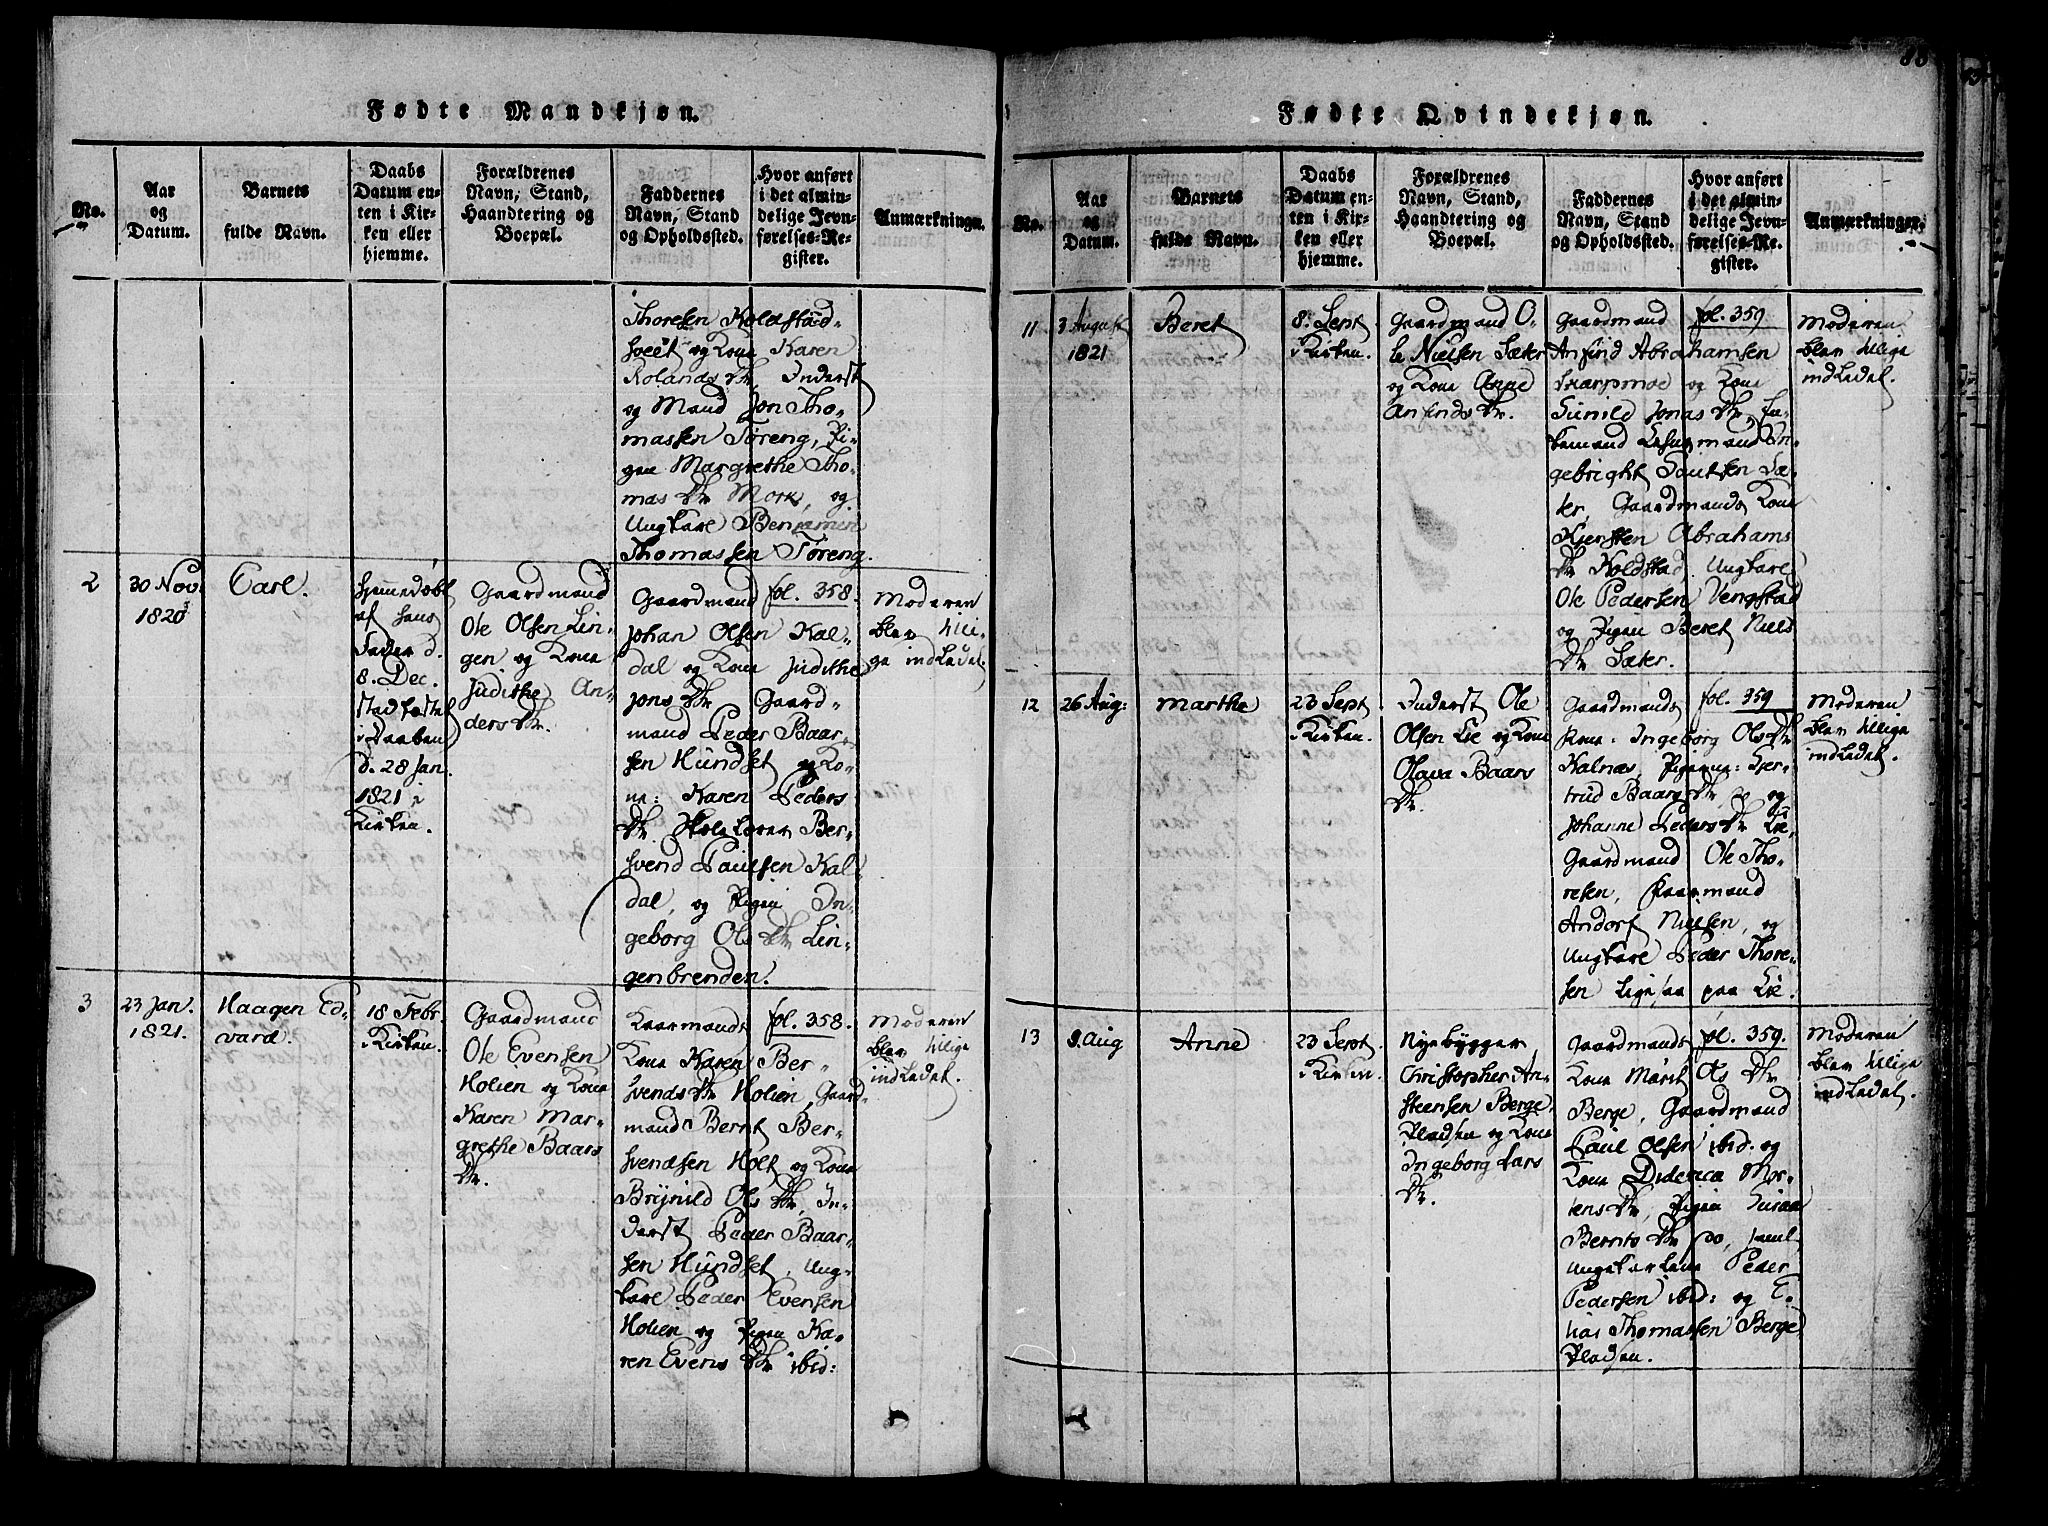 Fødte Mandkjøn.
No.
Aar
og
Datum.
Barnets
fulde Navn.
Daabs
Datum en-
ten i Kir-
ken eller
hjemme.
Forældrenes
Navn, Stand,
Haandtering og
Boepæl.
Faddernes
Navn, Stand
og Opholdssted.
Hvor anført
i det almin-
delige Jevn-
førelses-Re-
gister.
Anmærkninger.
Thoresen Koldstad-
og Kone Karen
Rolands Dtr, Inderst
og Mand Jon Tho-
massen Tøreng, Pi-
gen Margrethe Tho-
mas Dtr Mork, og
Ungkarl Benjamin
Thomassen Tøreng.
2
30 Nov.
1820
Carl.
hjemmedøbt
af hans
Fader d.
8. Dec.
stadfæstet
i Daaben
d. 28 Jan.
1821 i
Kirken.
Gaardmand
Ole Olsen Lin-
gen og Kone
Judithe An-
ders Dtr.
Gaardmand
Johan Olsen Kal-
dal og Kone Judithe
Jons Dtr Gaard-
mand Peder Baar-
sen Hundset og Ko-
ne: Karen Peders
Dtr Ber-
svend Paulsen Kal-
dal, og Pigen In-
geborg Ols Dtr Lin-
genbrenden.
fol. 358.
Moderen
blev tilli-
ge indledet.
3
23 Jan.
1821.
Haagen Ed-
vard.
18 Febr.
i Kirken.
Gaardmand
Ole Evensen
Holien og Kone
Karen Mar-
grethe Baars
Dtr.
Gaardmands
Kone Karen Ber-
svends Dtr Holien, Gaard-
mand Bernt Ber-
svendsen Holt og Kone
Brynild Ols Dtr, In-
derst Peder Baar-
sen Hundset, Ung-
karl Peder Evensen
Holien og Pigen Ka-
ren Evens Dtr ibid:
fol. 358.
Moderen
blev tillige
indledet.
Fødte Qvindekjøn.
No.
Aar
og
Datum.
Barnets
fulde Navn.
Daabs
Datum en-
ten i Kir-
ken eller
hjemme.
Forældrenes
Navn, Stand,
Haandtering og
Boepæl.
Faddernes
Navn, Stand
og Opholdssted.
Hvor anført
i det almin-
delige Jevn-
førelses-Re-
gister.
Anmærkninger.
11
3 August
1821
Beret
8. Sept
i Kirken.
Gaardmand O-
le Nielsen Sæter
og Kone Anne
Anfinds Dtr.
Gaardmand
Anfind Abrahamsen
Skarpmoe og Kone
Gunild Jonas Dtr,
In-
gebright Sæ-
ter, Gaardmands Kone
Kjersten Abrahams
Dtr Koldstad, Ungkarl
Ole Pedersen Vengstad
og Pigen Beret Niels
Dtr Sæter.
fol. 359
Moderen
blev tillige
indledet.
12
26 Aug:
Marthe
23 Sept
i Kirken.
Inderst Ole
Olsen Lie og Kone
Olava Baars
Dtr.
Gaardmands
Kone Ingeborg Ols Dtr
Kalnæs, Pigerne: Gjer-
trud Baars Dtr, og
Johanne Peders Dtr Lie,
Gaardmand Ole Tho-
resen, Kaarmand
Andorf Nielsen, og
Ungkarl Peder Thore-
sen ligesaa paa Lie.
fol. 359
Moderen
blev tillige
indledet.
13
9. Aug
Anne
23 Sept.
i Kirken.
Nyebygger
Christopher An-
steensen Berge-
Pladsen og Kone
Ingeborg Lars
Dtr.
Gaardmands
Kone Marit Ols Dtr
Berge, Gaardmand
Paul Olsen ibid. og
Kone Diderica Mor-
tens Dtr, Pigen
Bernts Dtr do, samt
Ungkarlene Peder
Pedersen ibid: og E-
lias Thomassen Berge
Pladsen.
fol. 359.
Moderen
blev tillige
indledet.